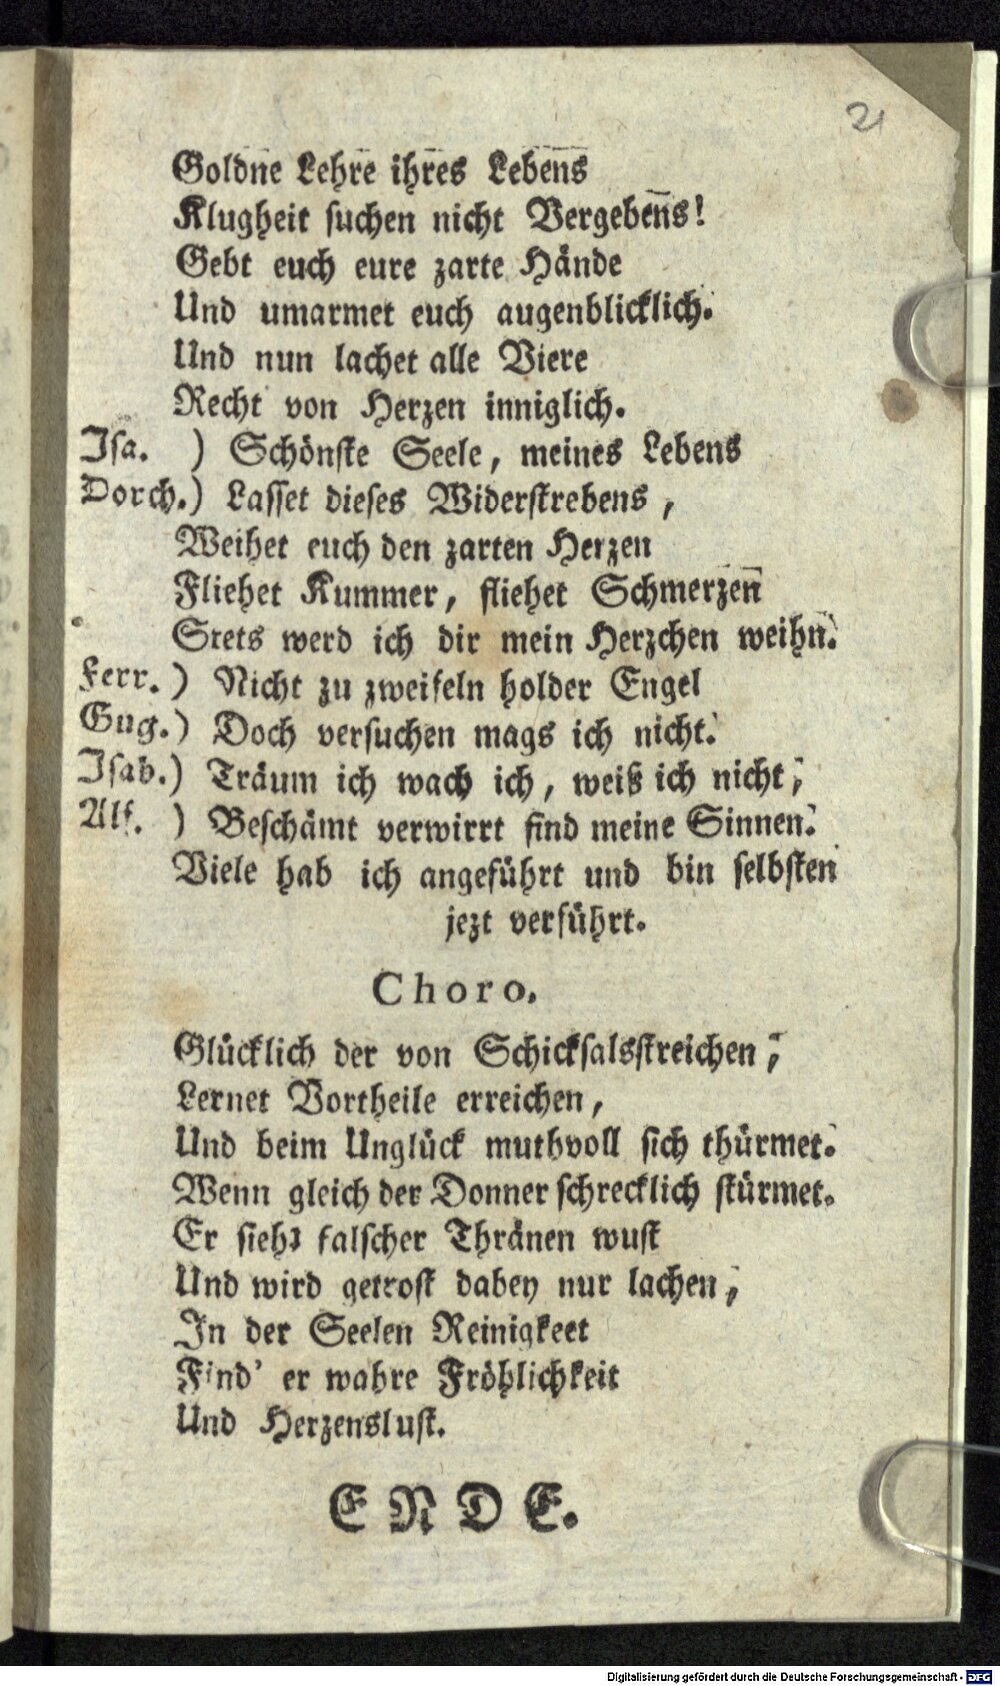 21
Goldne Lehre ihres Lebens
Klugheit suchen nicht Vergebens!
Gebt euch eure zarte Hände
Und umarmet euch augenblicklich.
Und nun lachet alle Viere
Recht von Herzen inniglich.
Isa. ) Schönste Seele, meines Lebens
Dorch.) Lasset dieses Widerstrebens,
Weihet euch den zarten Herzen
Fliehet Kummer, fliehet Schmerzen
Stets werd ich dir mein Herzchen weihn.
Ferr. ) Nicht zu zweifeln holder Engel
Gug. ) Doch versuchen mags ich nicht.
Isab.) Träum ich wach ich, weiß ich nicht,
Alf. ) Beschämt verwirrt sind meine Sinnen.
Viele hab ich angeführt und bin selbsten
jezt verführt.
Choro.
Glücklich der von Schicksalsstreichen,
Lernet Vortheile erreichen,
Und beim Unglück muthvoll sich thürmet.
Wenn gleich der Donner schrecklich stürmet.
Er sieht falscher Thränen wust
Und wird getrost dabey nur lachen,
In der Seelen Reinigkeet
Find' er wahre Fröhlichkeit
Und Herzenslust.
ENDE.
Digitalisierung gefördert durch die Deutsche Forschungsgemeinschaft - DFG